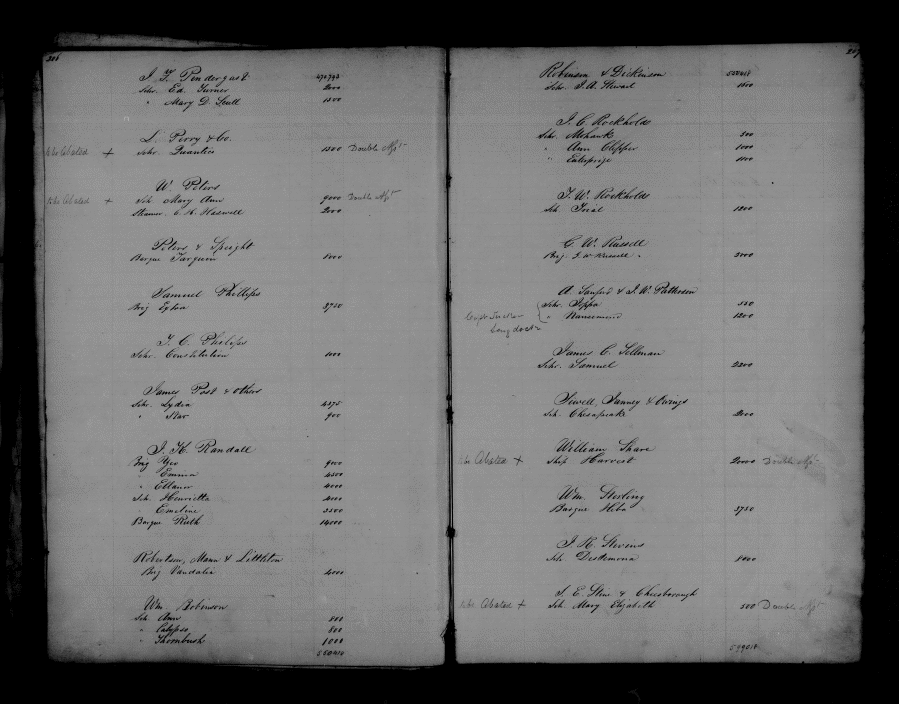 206
J. F. Pendergast 470793
Schr. Ed. Turner 2000
" Mary D. Scull 1500
L. Perry & Co.
to be Abated + Schr. Quantico 1500 Double
W. Peters
to be Abated + Sch Mary Ann 9000 Double
Steamer 2000
Peters & Speight
Barque Tarquin 1000
Samuel Phillips
Brig 3750
T. C. Philips
Schr. Constitution 1000
James Post & others
Schr. Lydia 4375
" Star 900
J. K. Randall
Brig 9000
" Emma 4500
" 4000
Sch. Henrietta 4000
" Emeline 3500
Barque Ruth 14000
Robertson, Mann & Littleton
Brig Vandalia 4000
Wm. Robinson
Sch. Ann 800
" Calypso 800
" Thornbush 1000
550418
207
Robinson & Dickinson 550418
Schr. J. A. Stewart 1800
J. C. Rockhold
Schr. Mohawk 800
" Ann Clipper 1000
" Enterprize 1100
T. W. Rockhold
Sch. Trial 1200
G. W. Russell
Brig. G W Russell 3000
A. Sanford & J. W. Patterson
Schr. Joppa 550
Capt Tucker " Nansemond 1200
James C. Sellman
Schr. Samuel 2200
Sewell, Janney & Owings
Sch. Chesapeake 2000
William Share
to be Abated + Ship Harvest 20000 Double
Wm. Sterling
Barque Hebe 3750
J. R. Stevens
Sch Desdemona
S. E. Stine & Cheseborough
to be Abated + Sch. Mary Elizabeth 500 Double
599018